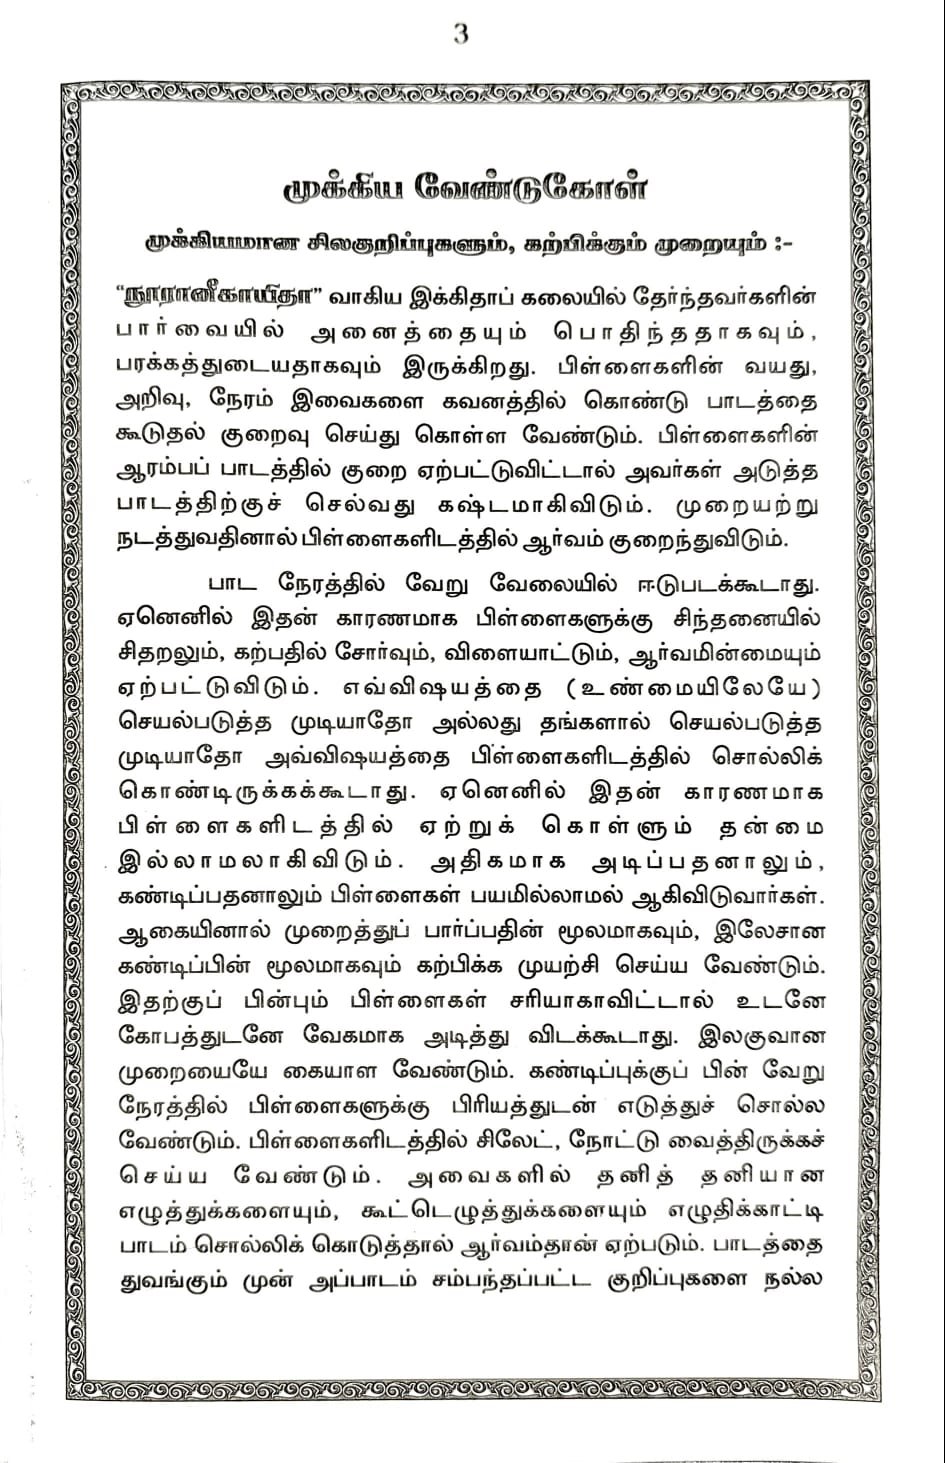 3
முக்கிய வேண்டுகோள்
முக்கியமான சிலகுறிப்புகளும், கற்பிக்கும் முறையும் :-
“நூரானீகாயிதா” வாகிய இக்கிதாப் கலையில் தேர்ந்தவர்களின்
பார்வையில் அனைத்தையும் பொதிந்ததாகவும்,
பரக்கத்துடையதாகவும் இருக்கிறது. பிள்ளைகளின் வயது,
அறிவு, நேரம் இவைகளை கவனத்தில் கொண்டு பாடத்தை
கூடுதல் குறைவு செய்து கொள்ள வேண்டும். பிள்ளைகளின்
ஆரம்பப் பாடத்தில் குறை ஏற்பட்டுவிட்டால் அவர்கள் அடுத்த
பாடத்திற்குச் செல்வது கஷ்டமாகிவிடும். முறையற்று
நடத்துவதினால் பிள்ளைகளிடத்தில் ஆர்வம் குறைந்துவிடும்.
பாட நேரத்தில் வேறு வேலையில் ஈடுபடக்கூடாது.
ஏனெனில் இதன் காரணமாக பிள்ளைகளுக்கு சிந்தனையில்
சிதறலும், கற்பதில் சோர்வும், விளையாட்டும், ஆர்வமின்மையும்
ஏற்பட்டுவிடும். எவ்விஷயத்தை (உண்மையிலேயே)
செயல்படுத்த முடியாதோ அல்லது தங்களால் செயல்படுத்த
முடியாதோ அவ்விஷயத்தை பிள்ளைகளிடத்தில் சொல்லிக்
கொண்டிருக்கக்கூடாது. ஏனெனில் இதன் காரணமாக
பிள்ளைகளிடத்தில் ஏற்றுக் கொள்ளும் தன்மை
இல்லாமலாகிவிடும். அதிகமாக அடிப்பதனாலும்,
கண்டிப்பதனாலும் பிள்ளைகள் பயமில்லாமல் ஆகிவிடுவார்கள்.
ஆகையினால் முறைத்துப் பார்ப்பதின் மூலமாகவும், இலேசான
கண்டிப்பின் மூலமாகவும் கற்பிக்க முயற்சி செய்ய வேண்டும்.
இதற்குப் பின்பும் பிள்ளைகள் சரியாகாவிட்டால் உடனே
கோபத்துடனே வேகமாக அடித்து விடக்கூடாது. இலகுவான
முறையையே கையாள வேண்டும். கண்டிப்புக்குப் பின் வேறு
நேரத்தில் பிள்ளைகளுக்கு பிரியத்துடன் எடுத்துச் சொல்ல
வேண்டும். பிள்ளைகளிடத்தில் சிலேட், நோட்டு வைத்திருக்கச்
செய்ய வேண்டும். அவைகளில் தனித் தனியான
எழுத்துக்களையும், கூட்டெழுத்துக்களையும் எழுதிக்காட்டி
பாடம் சொல்லிக் கொடுத்தால் ஆர்வம்தான் ஏற்படும். பாடத்தை
துவங்கும் முன் அப்பாடம் சம்பந்தப்பட்ட குறிப்புகளை நல்ல